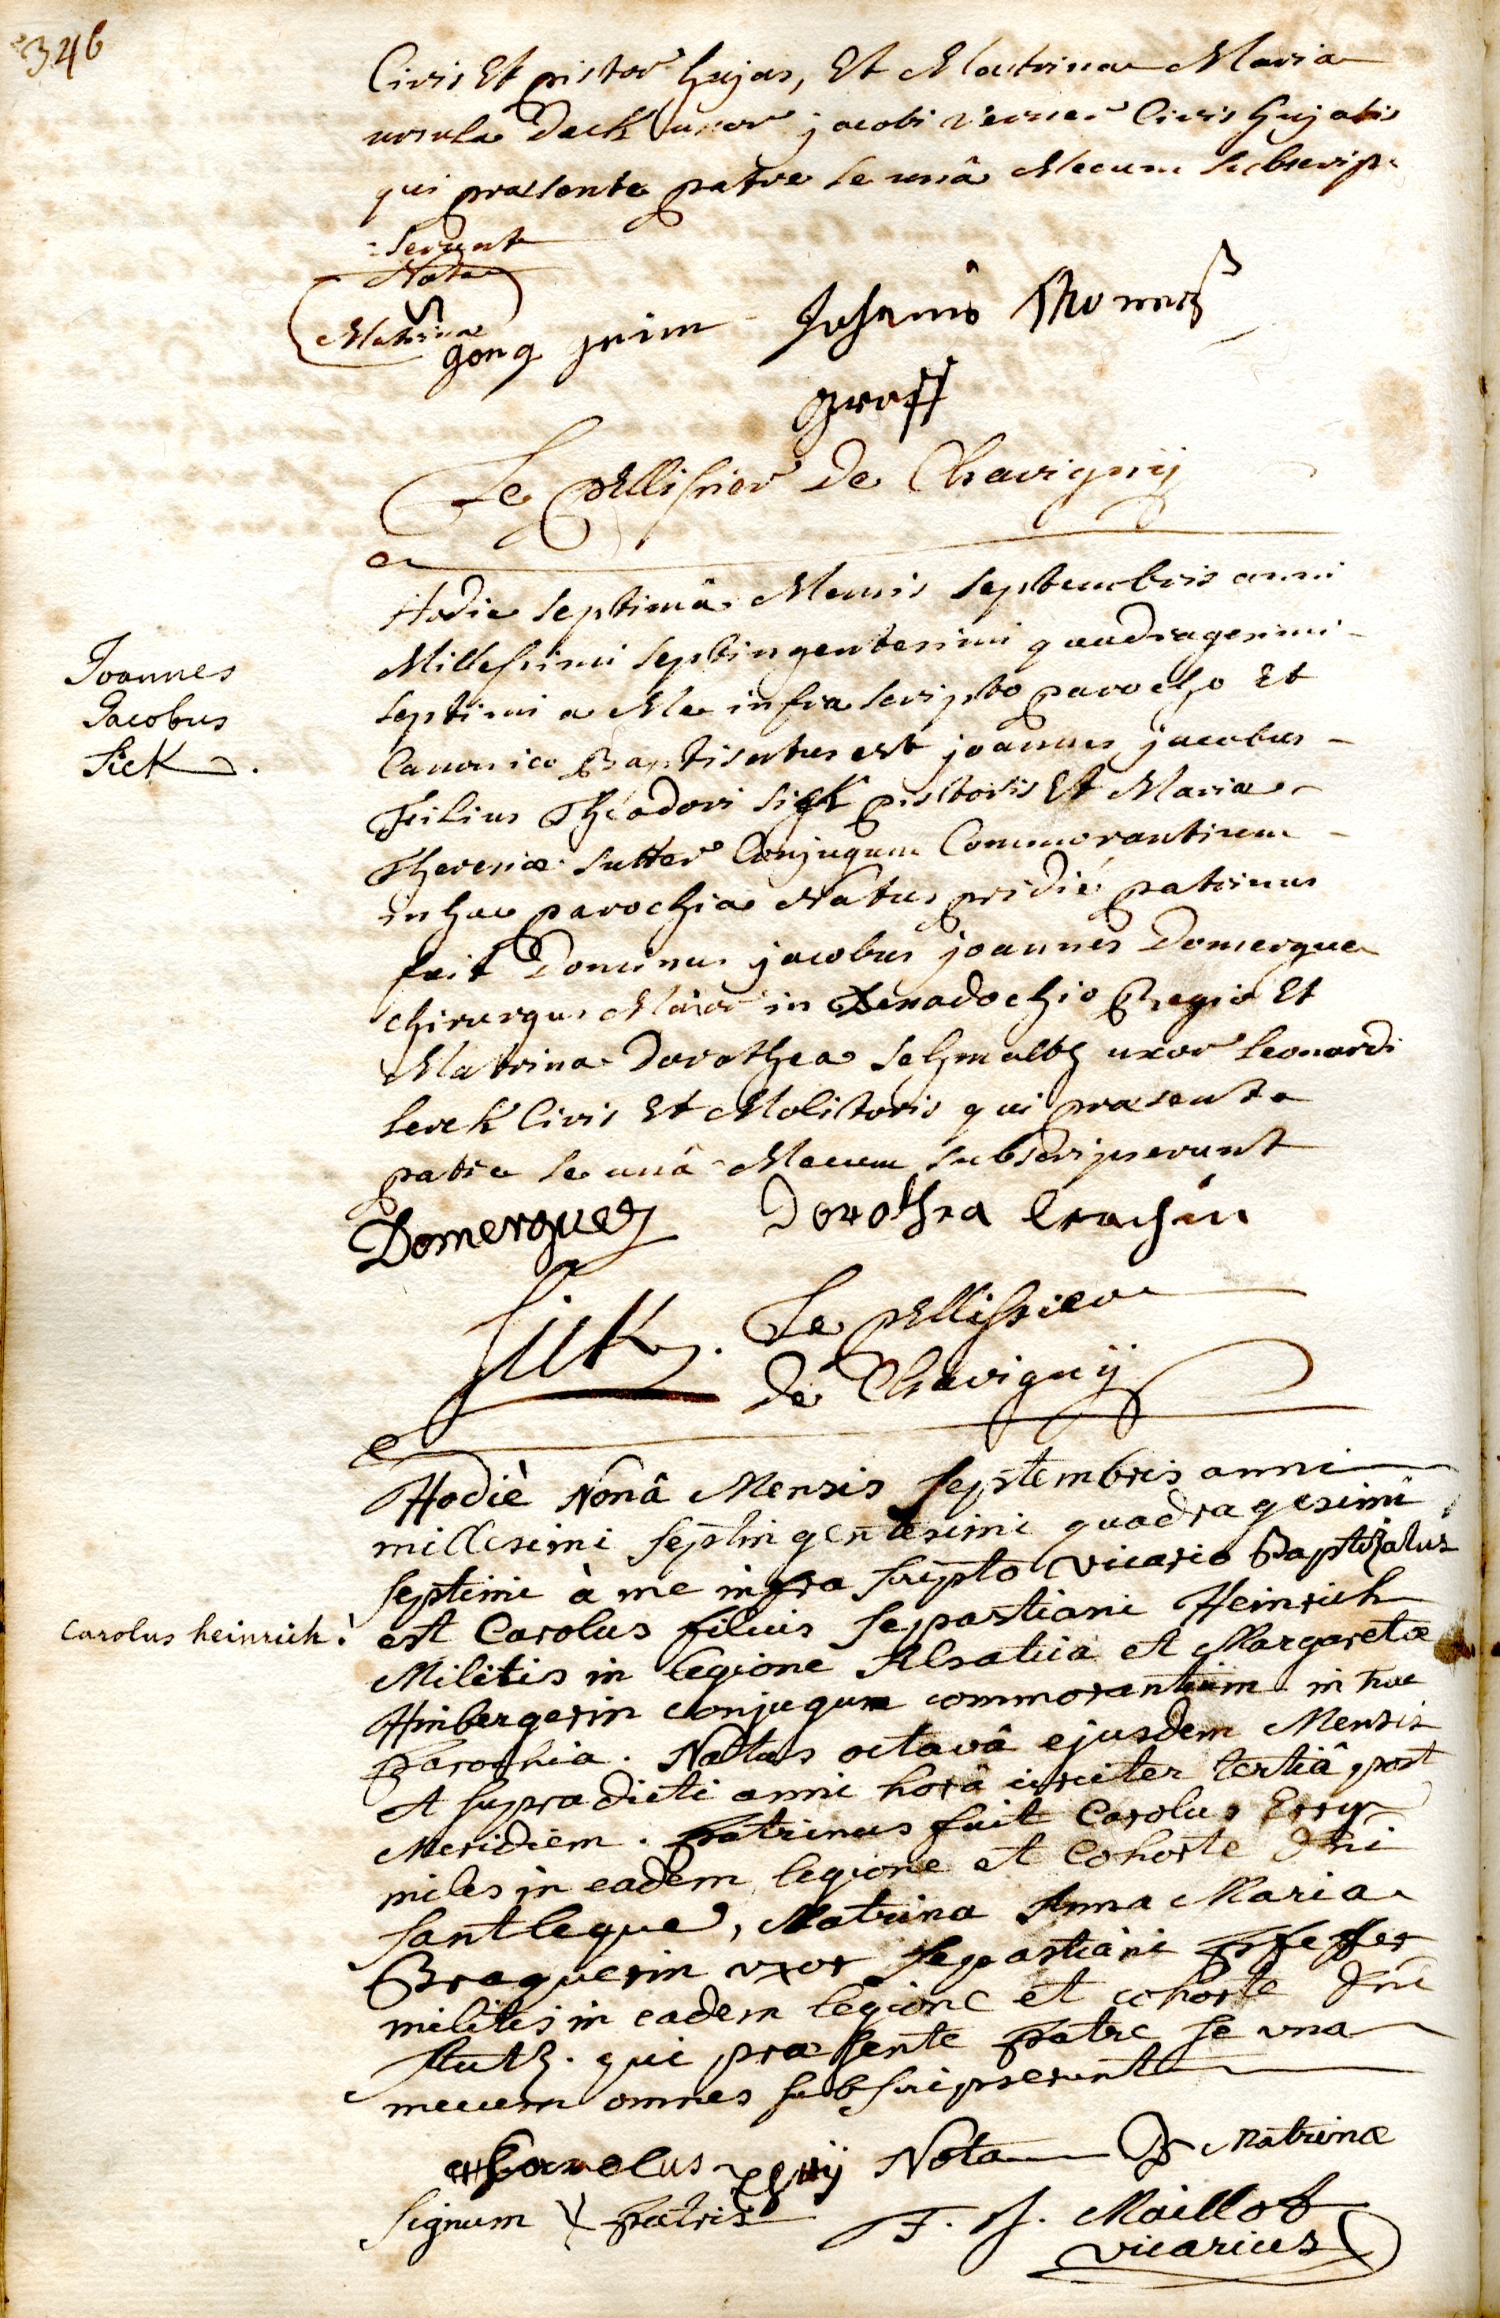 346
Civis Et pistor hujas, Et Matrina Maria
ursula Deck uxor jacobi verner Civis hujatis
qui praesente patre se unâ Mecum subscrip-
-serunt
Nota
Matrinae
Graff
Le pellissier De Chavignÿ
Hodie septimâ Mensis septembris anni
Millessimi septingentesimi quadragesimi
septimi a Me infra scripto parocho Et
Canonico Baptisatus est joannes jacobus
filius Théodori sick pistoris Et Mariae
Theresiae sutter Conjugum Commorantium
in hac parochia Natus pridié patrinus
fuit Dominus jacobus joannes Domergue
chirurgus Major in Xenadochio Regio Et
Matrina Dorothea Schmaltz uxor Leonardi
Lerch Civis Et Molitoris qui praesente
patre se unâ Mecum subscripserunt
Joannes
Jacobus
Sick.
Domergue Dorothea
Sick. Le pellissier
De Chavignÿ
Hodiè Nonâ Mensis septembris anni
millesimi septingentesimi quadragesimi
septimi à me infra scripto vicario Baptizatus
est Carolus filius sepastiani Heinrich
Militis in legione Alsatica et Margaretae
Hinbergerin conjugum commorantium in hac
Parochia. Natus octavâ ejusdem Mensis
et supradicti anni horâ circiter tertiâ post
Meridiem. Patrinus fuit Carolus Erry
miles in eadem legione et Cohorte Dni
Santleque, Matrina Anna Maria
Braguerin uxor sepastiani Pfeffer
militis in eadem legione et cohorte Dni
Stutz. qui praesente Patre se una
mecum omnes subscripserunt
Carolus heinrich.
Carolus Nota Matrinae
signum Patris F. J. Maillot
vicarius